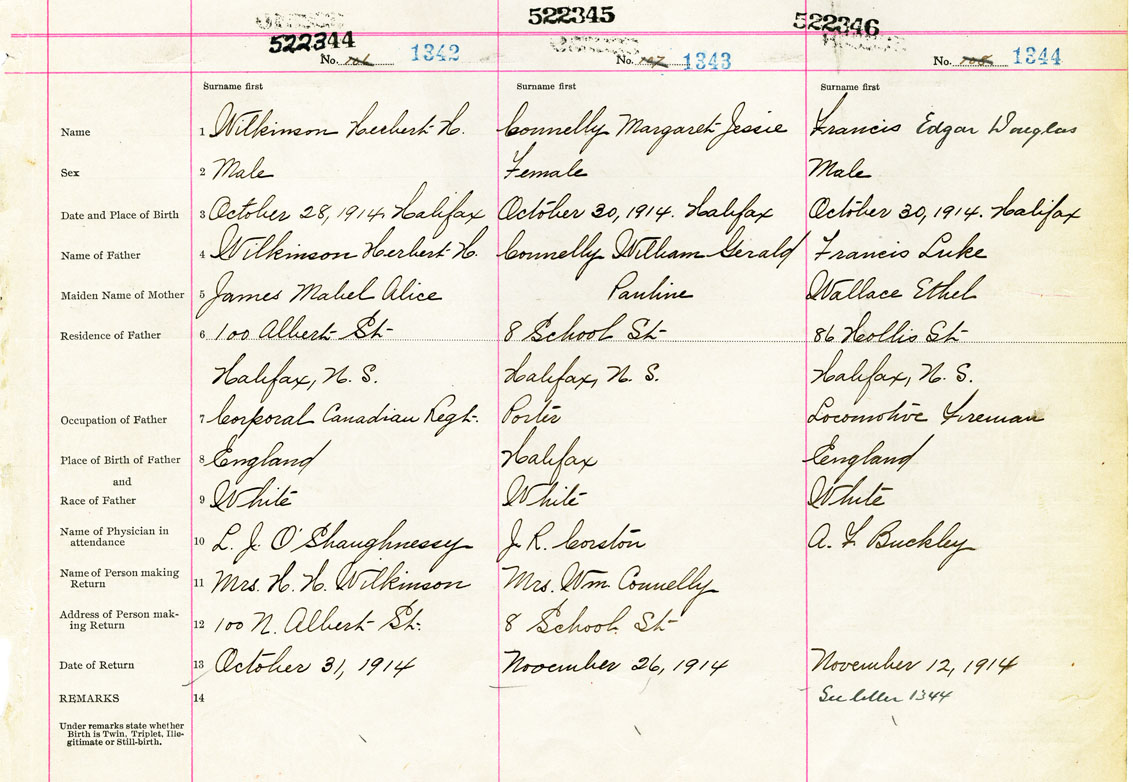 522344 522345 522346
No. 1342 No. 1343 No. 1344
Surname first Surname first Surname first
Name 1 Wilkinson Herbert H. Connelly Margaret Jessie Francis Edgar Douglas
Sex 2 Male Female Male
Date and Place of Birth 3 October 28, 1914. Halifax October 30, 1914. Halifax October 30, 1914. Halifax
Name of Father 4 Wilkinson Herbert H. Connelly William Gerald Francis Luke
Maiden Name of Mother 5 James Mabel Alice Pauline Wallace Ethel
Residence of Father 6 100 Albert St 8 School St 86 Hollis St
Halifax, N. S. Halifax, N. S. Halifax, N. S.
Occupation of Father 7 Corporal Canadian Regt. Porter Locomotive Fireman
Place of Birth of Father 8 England Halifax England
and
Race of Father 9 White White White
Name of Physician in
attendance 10 L. J. O'Shaughnessy J. R. Corston A. F Buckley
Name of Person making
Return 11 Mrs. H. H. Wilkinson Mrs. Wm Connelly
Address of Person mak-
ing Return 12 100 N. Albert St. 8 School St
Date of Return 13 October 31, 1914 November 26, 1914 November 12, 1914
REMARKS 14 See letter 1344
Under remarks state whether
Birth is Twin, Triplet, Ille-
gitimate or Still-birth.